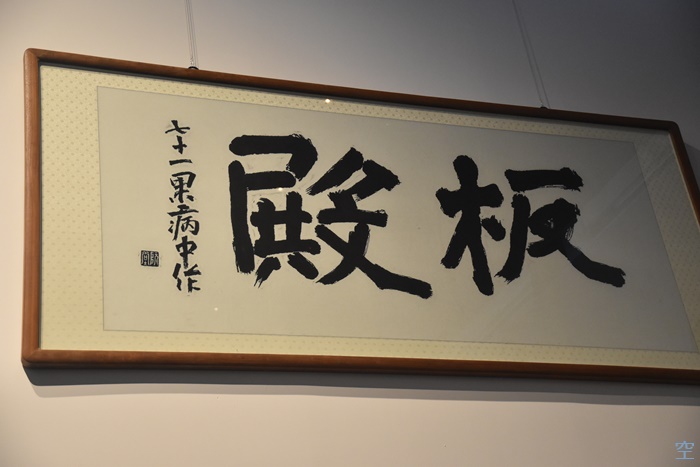 板殿
七十一果病中作
空